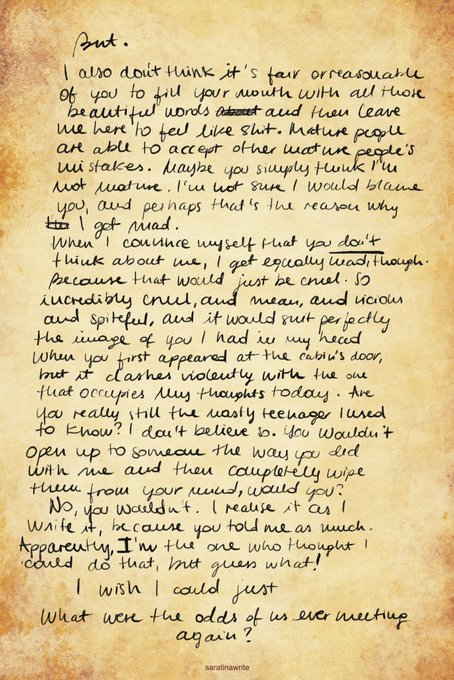 But.
I also don't think it's fair or reasonable
of you to fill your mouth with all those
beautiful words about and then leave
me here to feel like shit. Mature people
are able to accept other mature people's
mistakes. Maybe you simply think I'm
not mature. I'm not sure I would blame
you, and perhaps that's the reason why
I get mad.
When I convince myself that you don't
think about me, I get equally mad, though.
Because that would just be cruel. So
incredibly cruel, and mean, and vicious
and spiteful, and it would suit perfectly
the image of you I had in my head
when you first appeared at the cabin's door,
but it clashes violently with the one
that occupies my thoughts today. Are
you really still the nasty teenager I used
to know? I don't believe so. You wouldn't
open up to someone the way you did
with me and then completely wipe
them from your mind, would you?
No, you wouldn't. I realise it as I
write it, because you told me as much.
Apparently, I'm the one who thought I
could do that, but guess what!
I wish I could just
What were the odds of us ever meeting
again?
saratinawrite